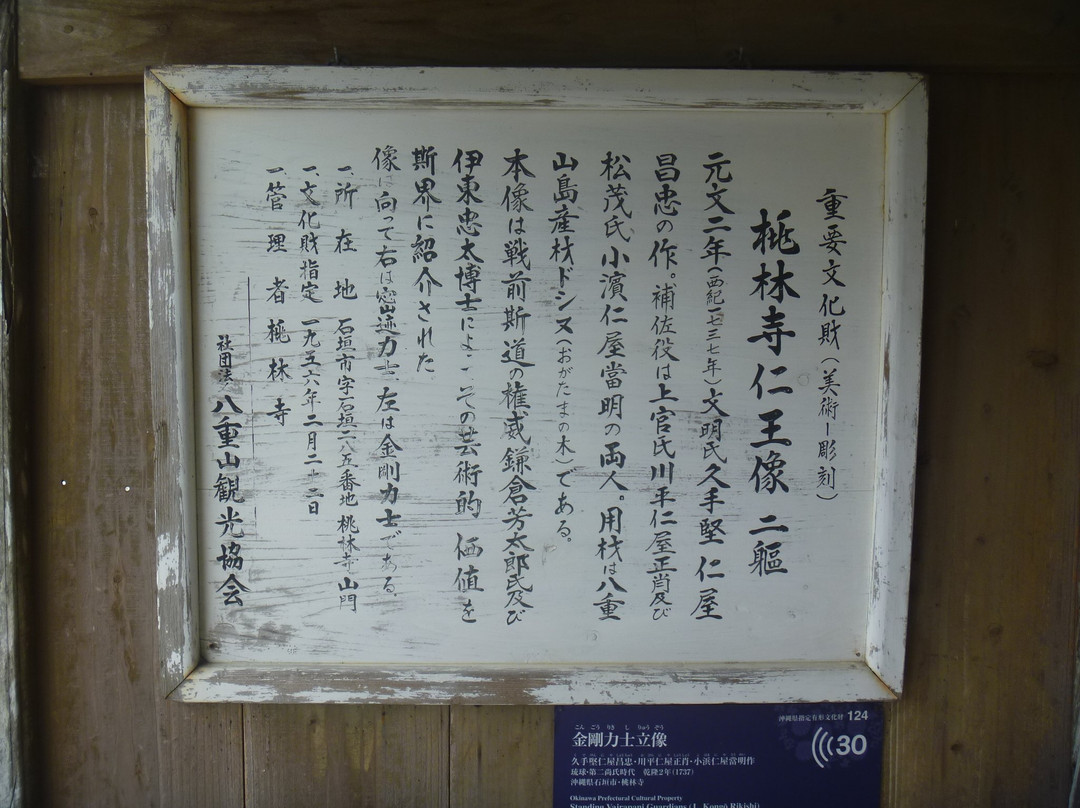 重要文化財(美術ー彫刻)
桃林寺仁王像 二軀
元文二年(西紀一七三七年)文明氏久手堅仁屋
昌忠の作。補佐役は上官氏川平仁屋正肖及び
松茂氏小濱仁屋當明の両人。用材は八重
山島産材ドシヌ(おがたまの木)である。
本像は戦前斯道の権威鎌倉芳太郎氏及び
伊東忠太博士によ その芸術的価値を
斯界に紹介された
像に向って右は密迹力士、左は金剛力士である。
一、所在地 石垣市字石垣二八五番地 桃林寺山門
一、文化財指定 一九五六年二月二十二日
一、管理者 桃林寺
社団法 八重山観光協会
沖縄県指定有形文化財 124
30
こんごうりきしりゅうぞう
金剛力士立像
久手堅仁屋昌忠・川平仁屋正肖・小浜仁屋當明作
琉球・第二尚氏時代 乾隆2年(1737)
沖縄県石垣市・桃林寺
Okinawa Prefectural Cultural Property
Standing Vajrapani Guardians (1. Kongō Rikishi)